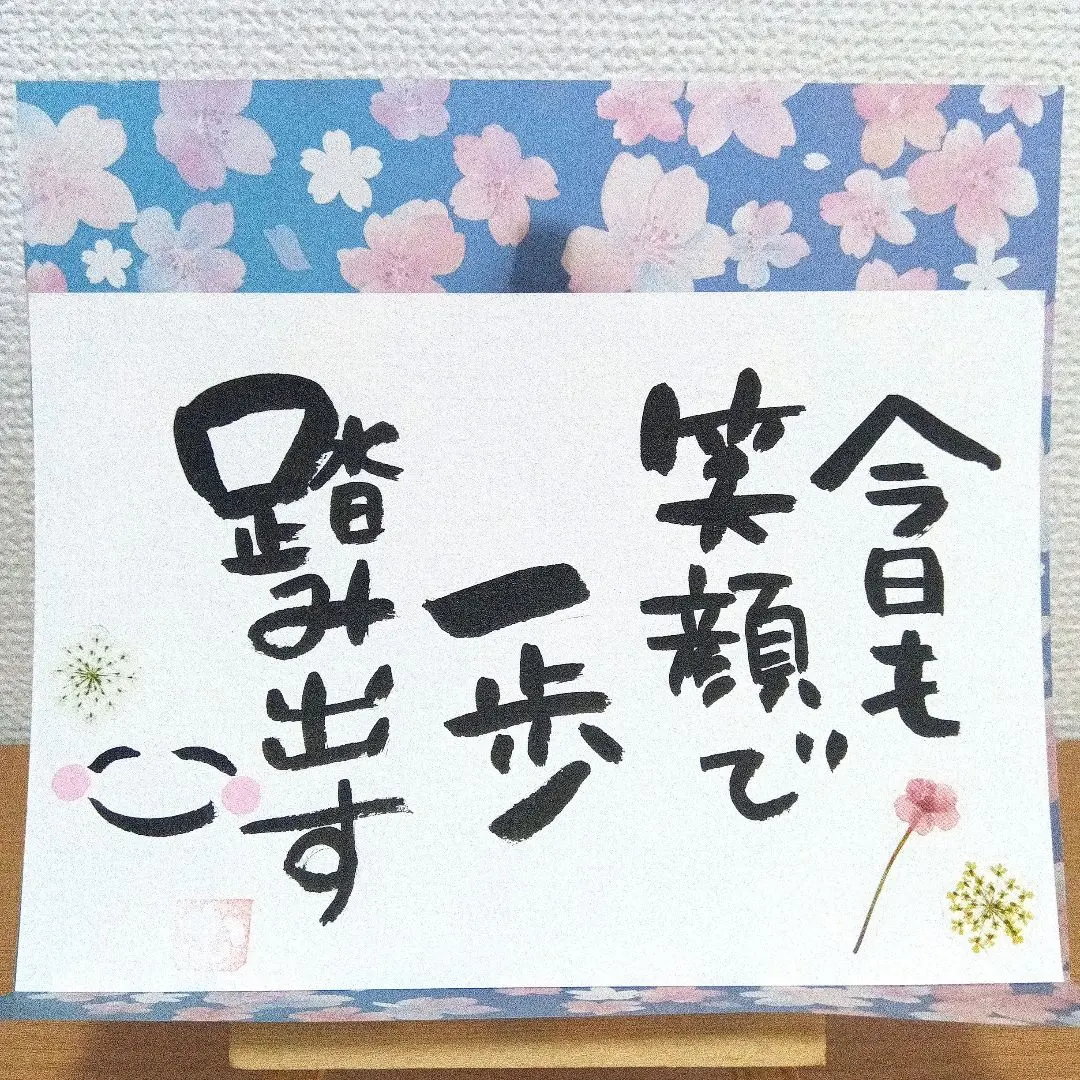 今日も
笑顔で
一歩
踏み出す